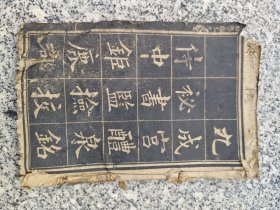 九成宮醴泉銘
秘書監檢校
侍中鉅鹿